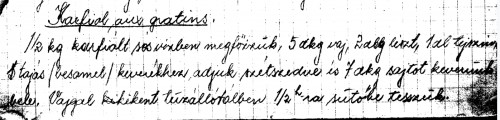 Karfiol aux gratins.
1/2 kg karfiólt sós vízben megfőzzük, 5 dkg vaj, 2 dkg liszt, 1 dl tejszin,
tojás (besamel) keverékhez adjuk szétszedve és 7 dkg sajtot keverünk
bele. Vajjal kikent tűzállótálben, 1/2 h ra sütőbe tesszük.